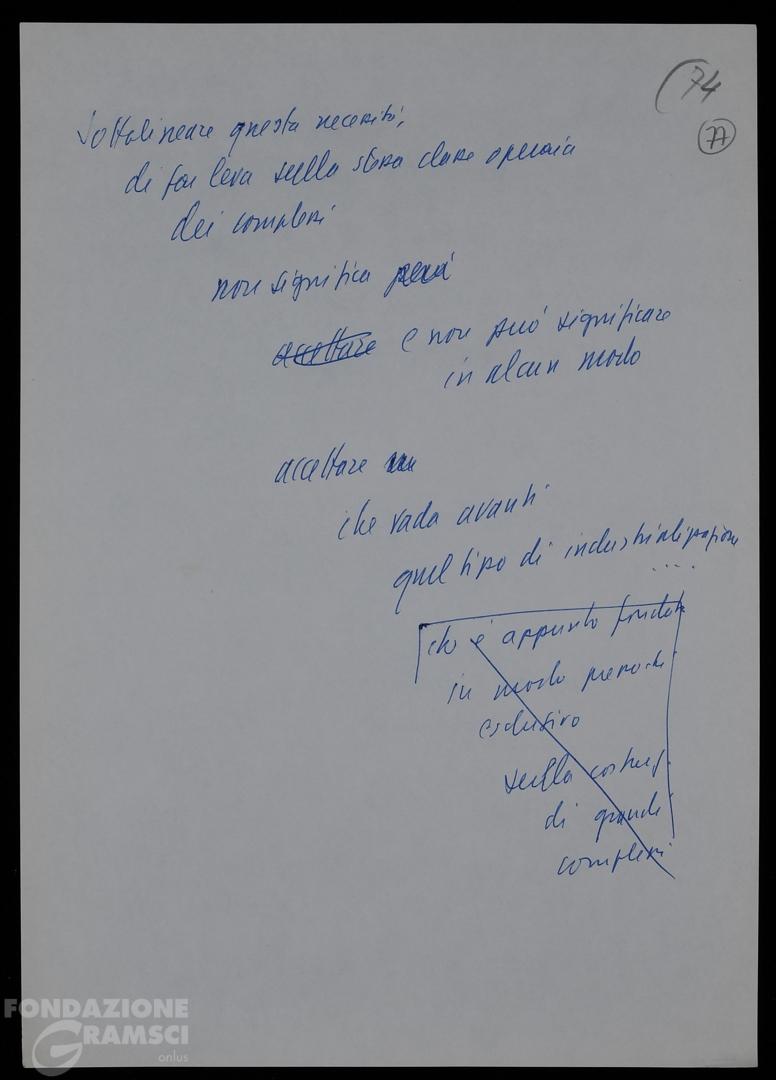 (74
77
Sottolineare questa necessità,
di far leva sulla stessa classe operaia
dei complessi
non significa però
accettare e non può significare
in alcun modo
accettare
che vada avanti
quel tipo di industrializzazione
....
che è appunto fondata
in modo pressoché
esclusivo
sulla costruz.
di grandi
complessi
FONDAZIONE
GRAMSCI
onlus